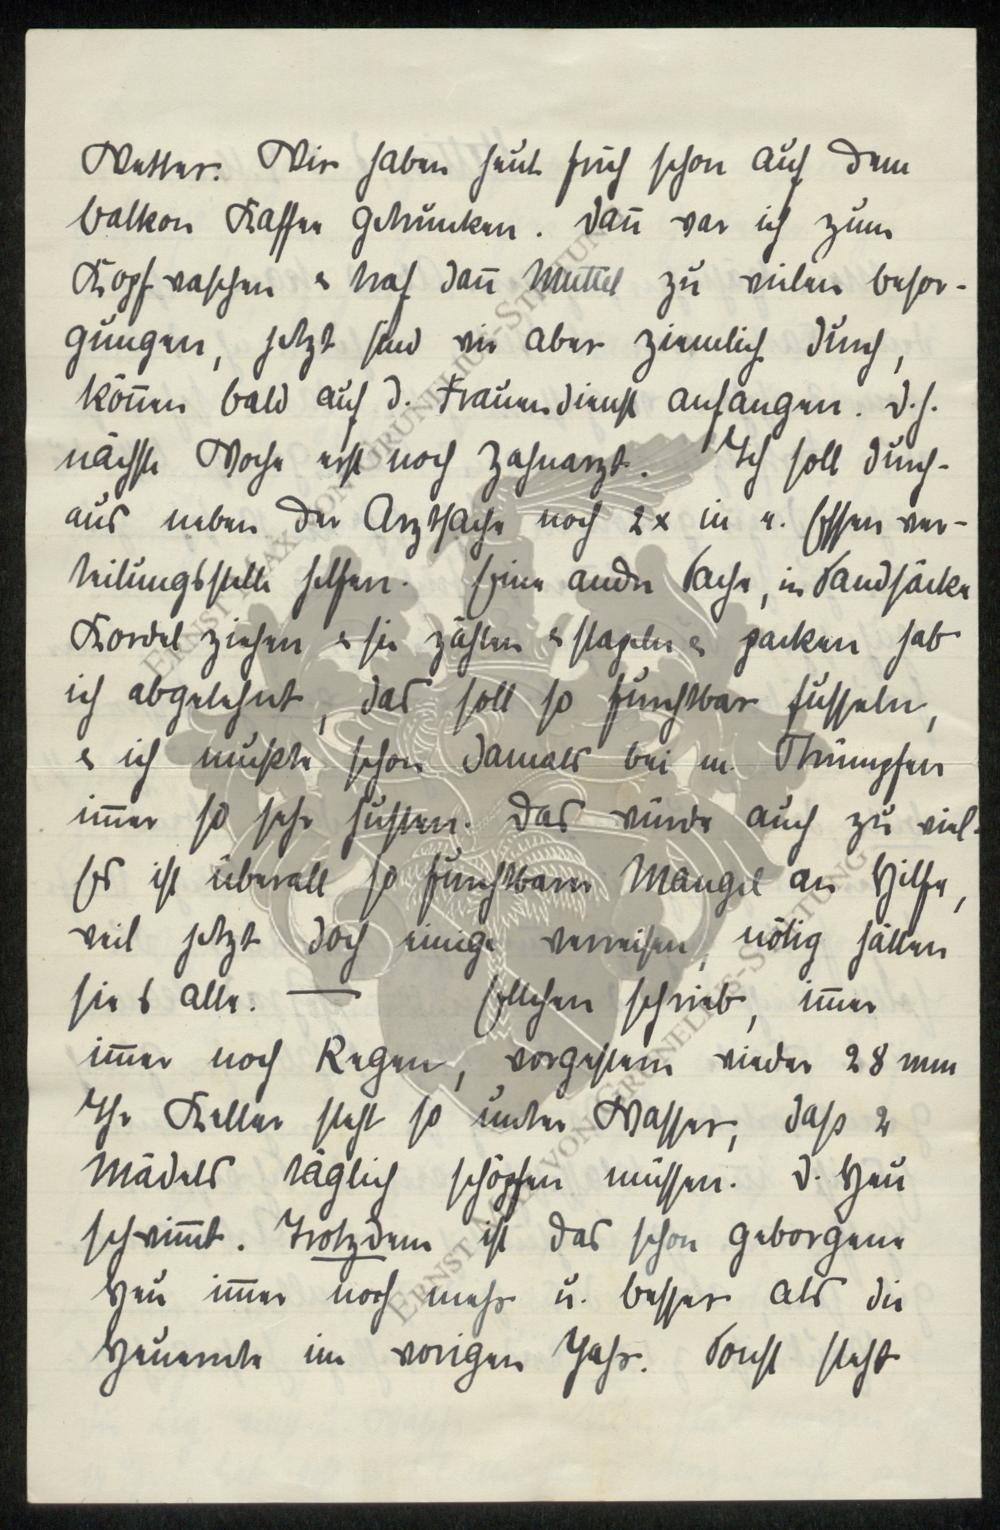 Wetter. Wir haben heut früh schon auf dem
Balkon Kaffee getrunken. Dan̄ war ich zum
Kopfwaschen & traf dan̄ Muttel zu vielen Besor-
gungen, jetzt sind wir aber ziemlich durch,
kön̄en bald auf d. Frauendienst anfangen. D.h.
nächste Woche erst noch Zahnarzt. Ich soll durch-
aus neben der Arztsache noch 2x in e. Essenver-
teilungsstelle helfen. Eine andre Sache, in Sandsäcke
Kordel ziehen & sie zählen & stapeln & packen hab
ich abgelehnt, das soll so furchtbar fusseln,
& ich mußte schon damals bei m. Strümpfen
im̄er so sehr husten. Das würde auch zu viel.
Es ist überall so furchtbarer Mangel an Hilfe,
weil jetzt doch einige verreisen, nötig hätten
sie's alle. — Ellchen schrieb, im̄er
im̄er noch Regen, vorgestern wieder 28 mm
Ihr Keller steht so unter Wasser, daß 2
Mädels täglich schöpfen müssen. D. Heu
schwim̄t. Trotzdem ist das schon geborgene
Heu im̄er noch mehr u. besser als die
Heuernte im vorigen Jahr. Sonst steht
ERNST MAX VON GRUNELIUS-STIFTUNG
ERNST MAX VON GRUNELIUS-STIFTUNG